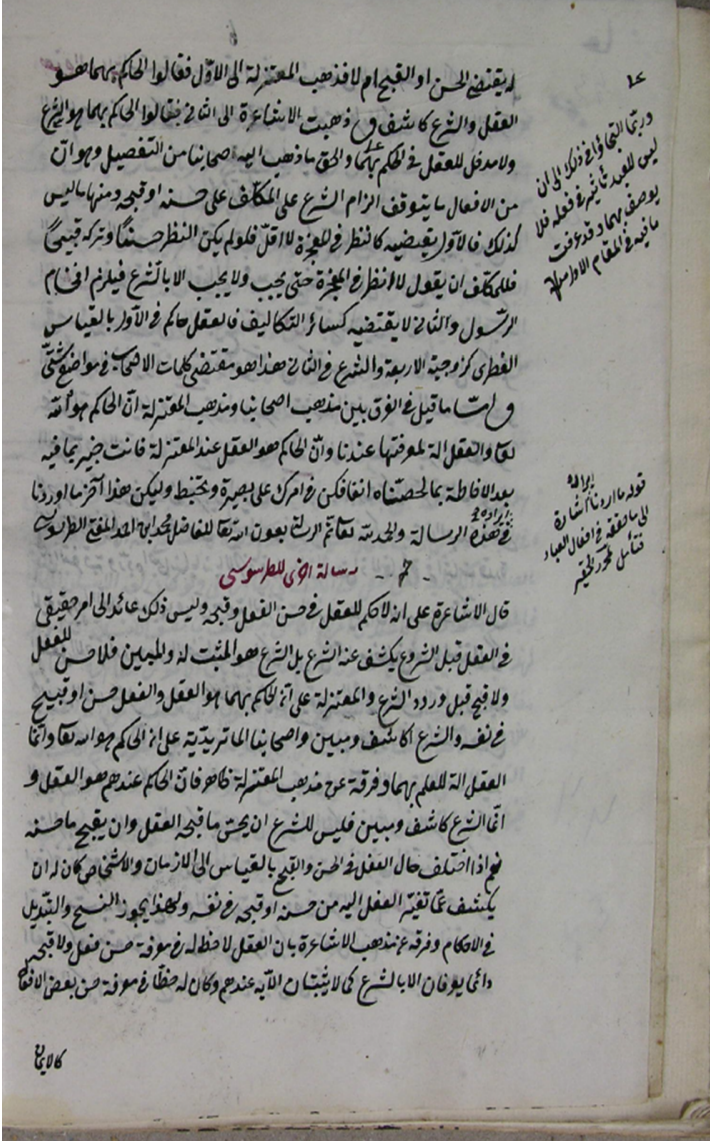 له يقتضى الحسن او القبح ام لا فذهب المعتزلة الى الاول فقالوا الحاكم بهما هو
العقل والشرع كاشف و ذهبت الاشاعرة الى الثانى فقالوا الحاكم بهما هو الشرع
ولا مدخل للعقل فى الحكم بهما والحق ما ذهب اليه اصحابنا من التفصيل وهو ان
من الافعال ما يتوقف الزام الشرع على المكلف على حسنه او قبحه ومنها ما ليس
كذلك فالاول يقتضيه كالنظر فى المعجزة لا اقل فلو لم يكن النظر حسنا وتركه قبيحا
فللمكلف ان يقول لا انظر فى المعجزة حتى يجب ولا يجب الا بالشرع فيلزم افحام
الرسول والثانى لا يقتضيه كسائر التكاليف فالعقل حاكم فى الاول بالقياس
الفطرى كزوجية الاربعة والشرع فى الثانى هذا هو مقتضى كلمات الاصحاب فى مواضع شتى
و اما ما قيل فى الفرق بين مذهب اصحابنا ومذهب المعتزلة ان الحاكم هو الله
تعا والعقل الة لمعرفتها عندنا وان الحاكم هو العقل عند المعتزلة فانت خبير بما فيه
بعد الاحاطة بما لخصناه انفا فكن فى امرك على بصيرة وتحفظ وليكن هذا آخر ما اوردنا
ايراده فى هذه الرسالة والحمد لله تعا تم الرسالة بعون الله تعا للفاضل محمد ابن احمد المفتى الطرسوسى
م رسالة اخرى للطرسوسى
قال الاشاعرة على انه لا حكم للعقل فى حسن الفعل وقبحه وليس ذلك عائد الى امر حقيقى
فى العقل قبل الشروع يكشف عنه الشرع بل الشرع هو المثبت له والمبين فلا حسن للفعل
ولا قبح قبل ورود الشرع والمعتزلة على ان الحاكم بهما هو العقل والفعل حسن او قبيح
فى نفسه والشرع كاشف ومبين واصحابنا الماتريدية على ان الحاكم هو الله تعا وانما
العقل الة للعلم بهما وفرقه عن مذهب المعتزلة ظاهر فان الحاكم عندهم هو العقل و
انما الشرع كاشف ومبين فليس للشرع ان يحسن ما قبحه العقل وان يقبح ما حسنه
نعم اذا اختلف حال الفعل فى الحسن والقبح بالقياس الى الازمان والاشخاص كان له ان
يكشف عما تغير الفعل اليه من حسنه او قبحه فى نفسه ولهذا يجوز النسخ والتبديل
فى الاحكام وفرقه عن مذهب الاشاعرة بان العقل لا حظ له فى معرفة حسن فعل ولا قبحه
وانما يعرفان الا بالشرع كما لا يثبتان الا به عندهم وكان له حظا فى معرفة حسن بعض الافعال
كالايمان
وربما التجاؤا فى ذلك الى ان
ليس للعبد تأثير فى فعله فلا
يوصف بهما وقد عرفت
ما فيه فى المقام الاول
قوله ما اردنا ايراده اشارة
الى ما حققه فى افعال العباد
فتأمل